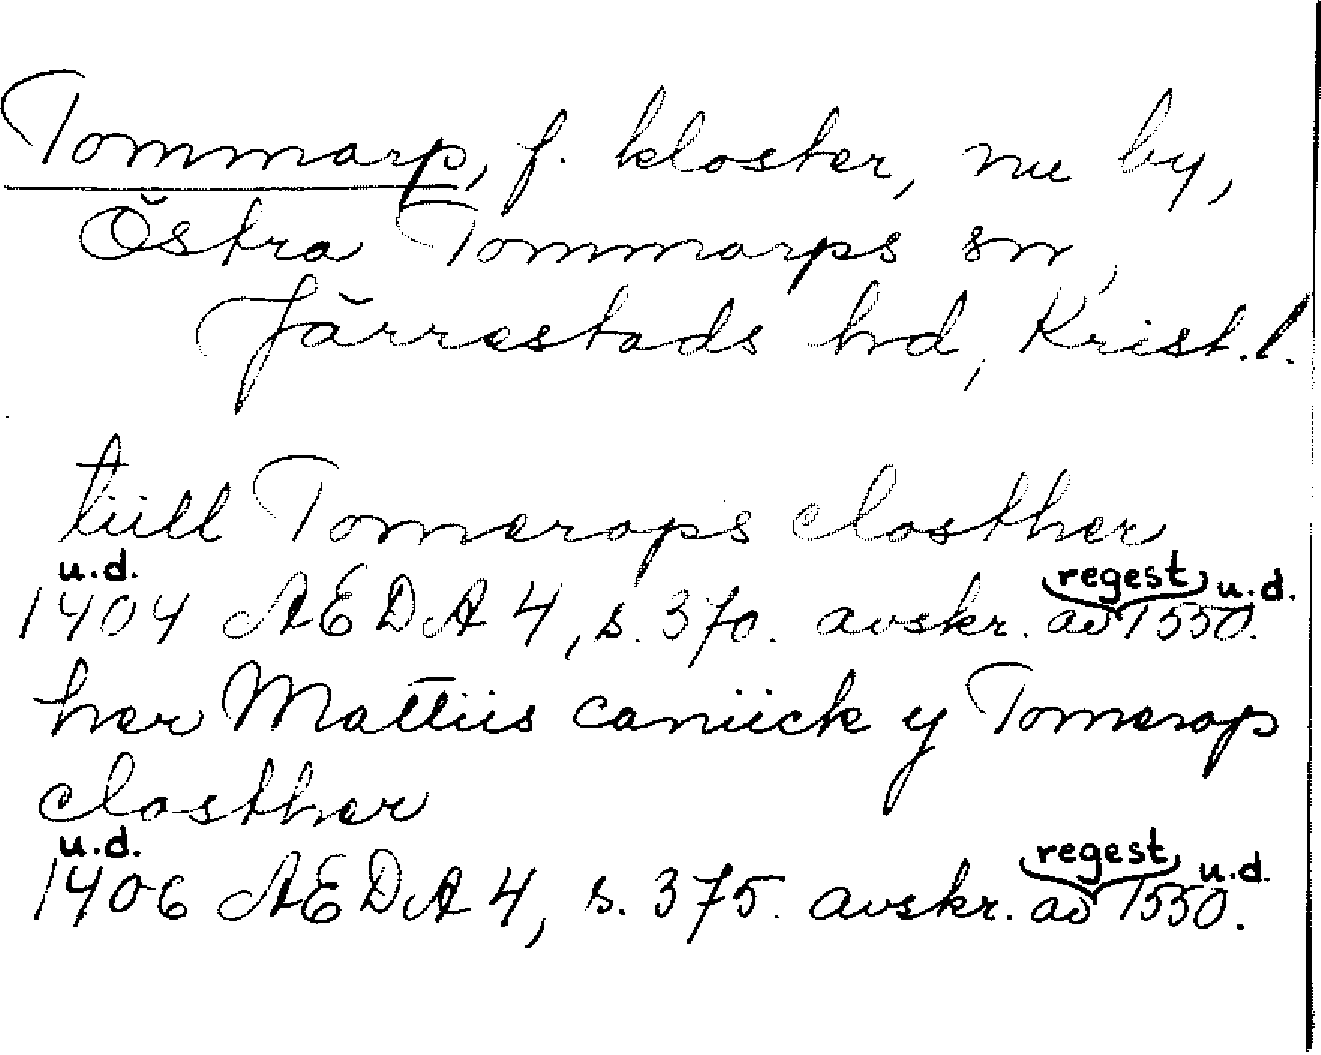 Tommarp, f. kloster, nu by,
Östra Tommarps sn,
Järrestads hd, Krist. l.
tiill Tomerops closther
u.d. regest u.d.
1404 AEDA 4, s. 370. avskr. av 1550.
her Mattiis caniick y Tomerop
closther
u.d. regest u.d.
1406 AEDA 4, s. 375. avskr. av 1550.